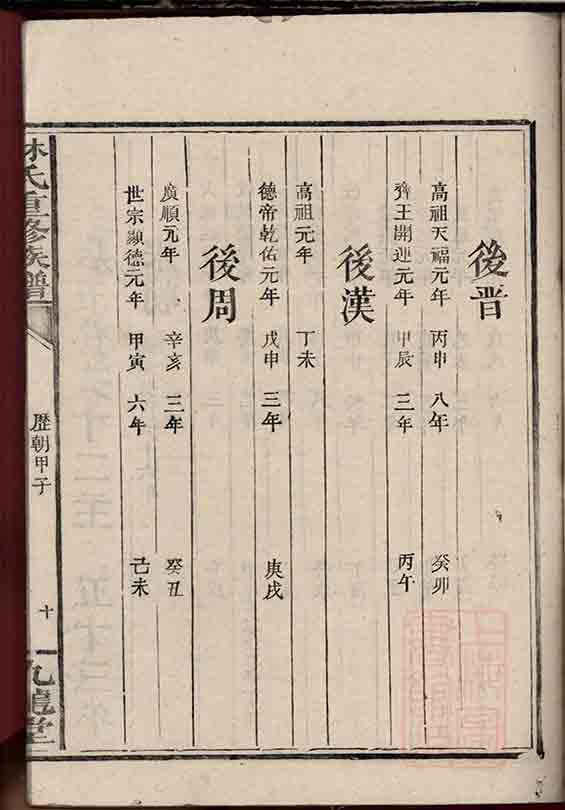 後晋
高祖天福元年 丙申 八年 癸卯
齊王開運元年 甲辰 三年 丙午
後漢
高祖元年 丁未
德帝乾佑元年 戊申 三年 庚戌
後周
廣順元年 辛亥 三年 癸丑
世宗顯德元年 甲寅 六年 己未
林氏重修族譜
歷朝甲子
十
九龍堂